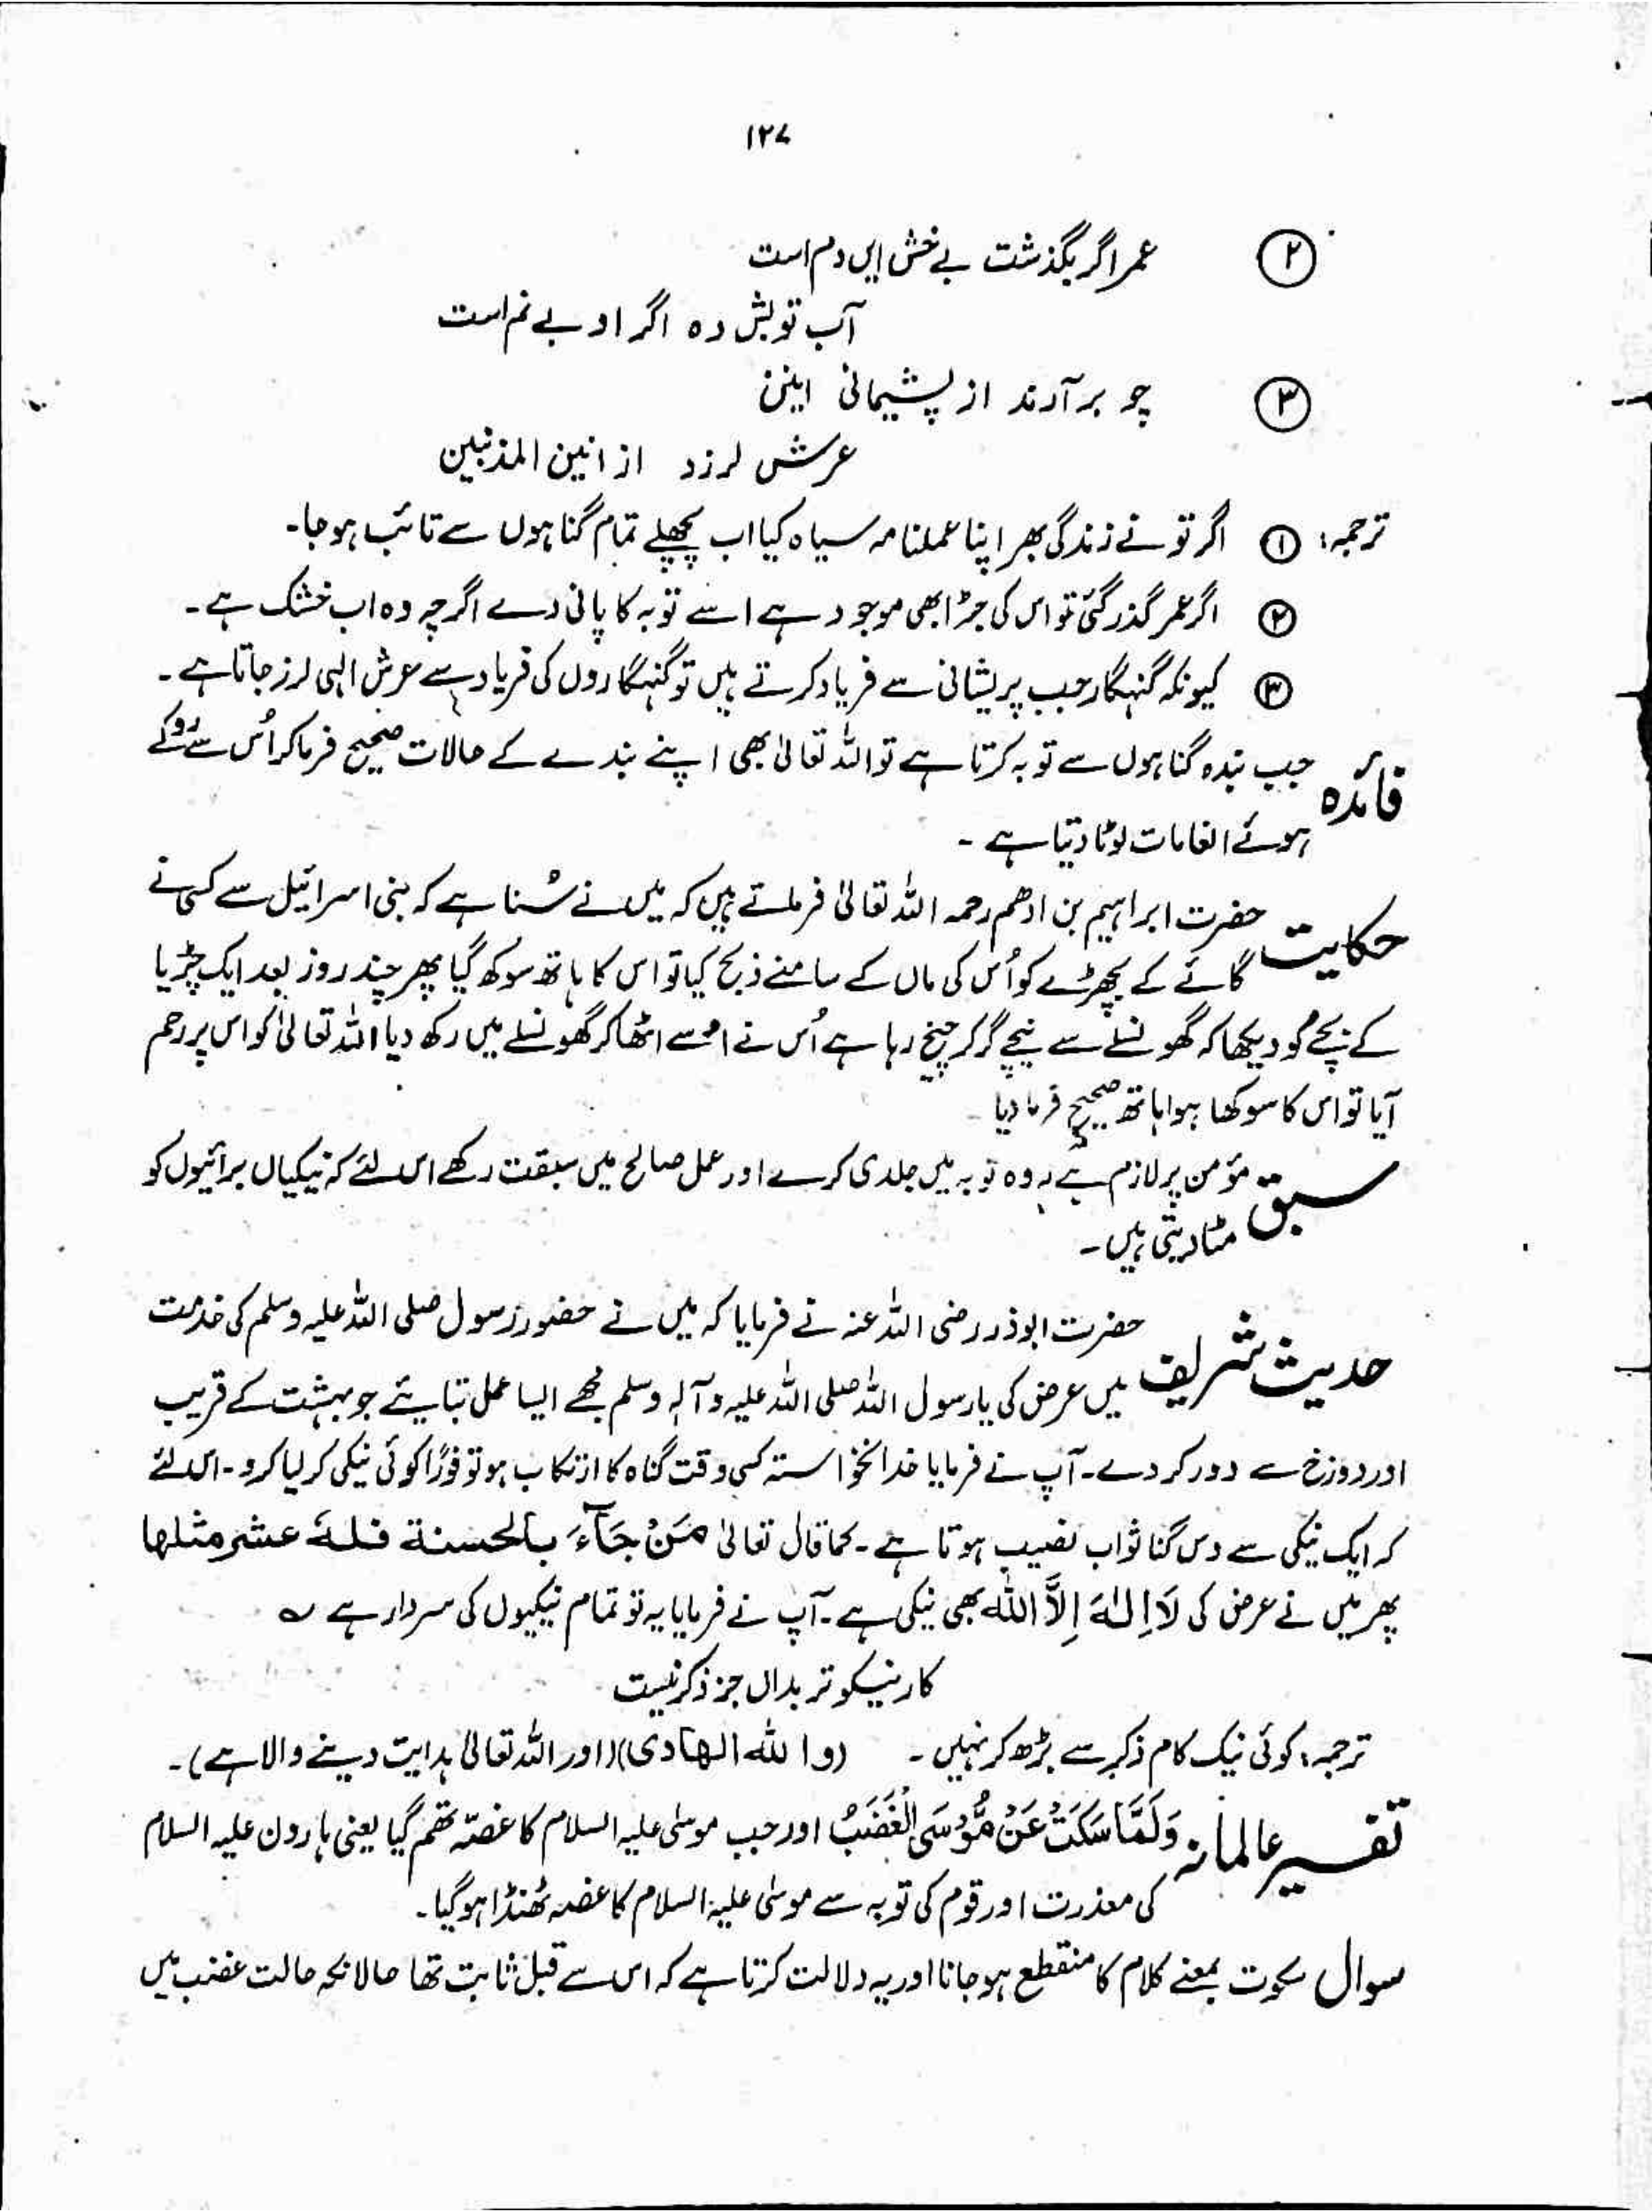 ١٢٧
② عمر اگر بگذشت بے خش ایں دم است
آب توبش دہ اگر او بے نم است
③ چو برآرند از پشیمانی انین
عرش لرزد از انین المذنبین
ترجمہ: ① اگر تو نے زندگی بھر اپنا عملنامہ سیاہ کیا اب پچھلے تمام گناہوں سے تائب ہوجا۔
② اگر عمر گذر گئی تو اس کی جڑ ابھی موجود ہے اسے توبہ کا پانی دے اگرچہ وہ اب خشک ہے۔
③ کیونکہ گنہگار جب پریشانی سے فریاد کرتے ہیں تو گنہگاروں کی فریاد سے عرش الہی لرز جاتا ہے۔
فائدہ جب بندہ گناہوں سے توبہ کرتا ہے تو اللہ تعالیٰ بھی اپنے بندے کے حالات صحیح فرما کر اُس سے روکے
ہوئے انعامات لوٹا دیتا ہے۔
حکایت حضرت ابراہیم بن ادھم رحمہ اللہ تعالیٰ فرماتے ہیں کہ میں نے سُنا ہے کہ بنی اسرائیل سے کسی نے
گائے کے بچھڑے کو اُس کی ماں کے سامنے ذبح کیا تو اس کا ہاتھ سوکھ گیا پھر چند روز بعد ایک چڑیا
کے بچے کو دیکھا کہ گھونسلے سے نیچے گر کر چیخ رہا ہے اُس نے اُسے اٹھا کر گھونسلے میں رکھ دیا اللہ تعالیٰ کو اس پر رحم
آیا تو اس کا سوکھا ہوا ہاتھ صحیح فرما دیا۔
سبق مؤمن پر لازم ہے کہ وہ توبہ میں جلدی کرے اور عمل صالح میں سبقت رکھے اس لئے کہ نیکیاں برائیوں کو
مٹا دیتی ہیں۔
حدیث شریف حضرت ابوذر رضی اللہ عنہ نے فرمایا کہ میں نے حضور رسول صلی اللہ علیہ وسلم کی خدمت
میں عرض کی یا رسول اللہ صلی اللہ علیہ وآلہ وسلم مجھے ایسا عمل بتایئے جو بہشت کے قریب
اور دوزخ سے دور کر دے۔ آپ نے فرمایا خدانخواستہ کسی وقت گناہ کا ارتکاب ہو تو فورًا کوئی نیکی کر لیا کرو۔ اس لئے
کہ ایک نیکی سے دس گنا ثواب نصیب ہوتا ہے۔ کما قال تعالیٰ مَنْ جَآءَ بالحسنة فله عشر مثلها
پھر میں نے عرض کی لَا اِلٰهَ اِلَّا اللّٰه بھی نیکی ہے۔ آپ نے فرمایا یہ تو تمام نیکیوں کی سردار ہے ؎
کار نیکو تر بداں جز ذکر نیست
ترجمہ: کوئی نیک کام ذکر سے بڑھ کر نہیں۔ (واللہ الھادی) (اور اللہ تعالیٰ ہدایت دینے والا ہے)۔
تفسیر عالمانہ وَلَمَّا سَكَتَ عَنْ مُّوْسَى الْغَضَبُ اور جب موسیٰ علیہ السلام کا غصّہ تھم گیا یعنی ہارون علیہ السلام
کی معذرت اور قوم کی توبہ سے موسیٰ علیہ السلام کا غصہ ٹھنڈا ہوگیا۔
سوال سکوت بمعنے کلام کا منقطع ہو جانا اور یہ دلالت کرتا ہے کہ اس سے قبل ثابت تھا حالانکہ حالت غضب میں